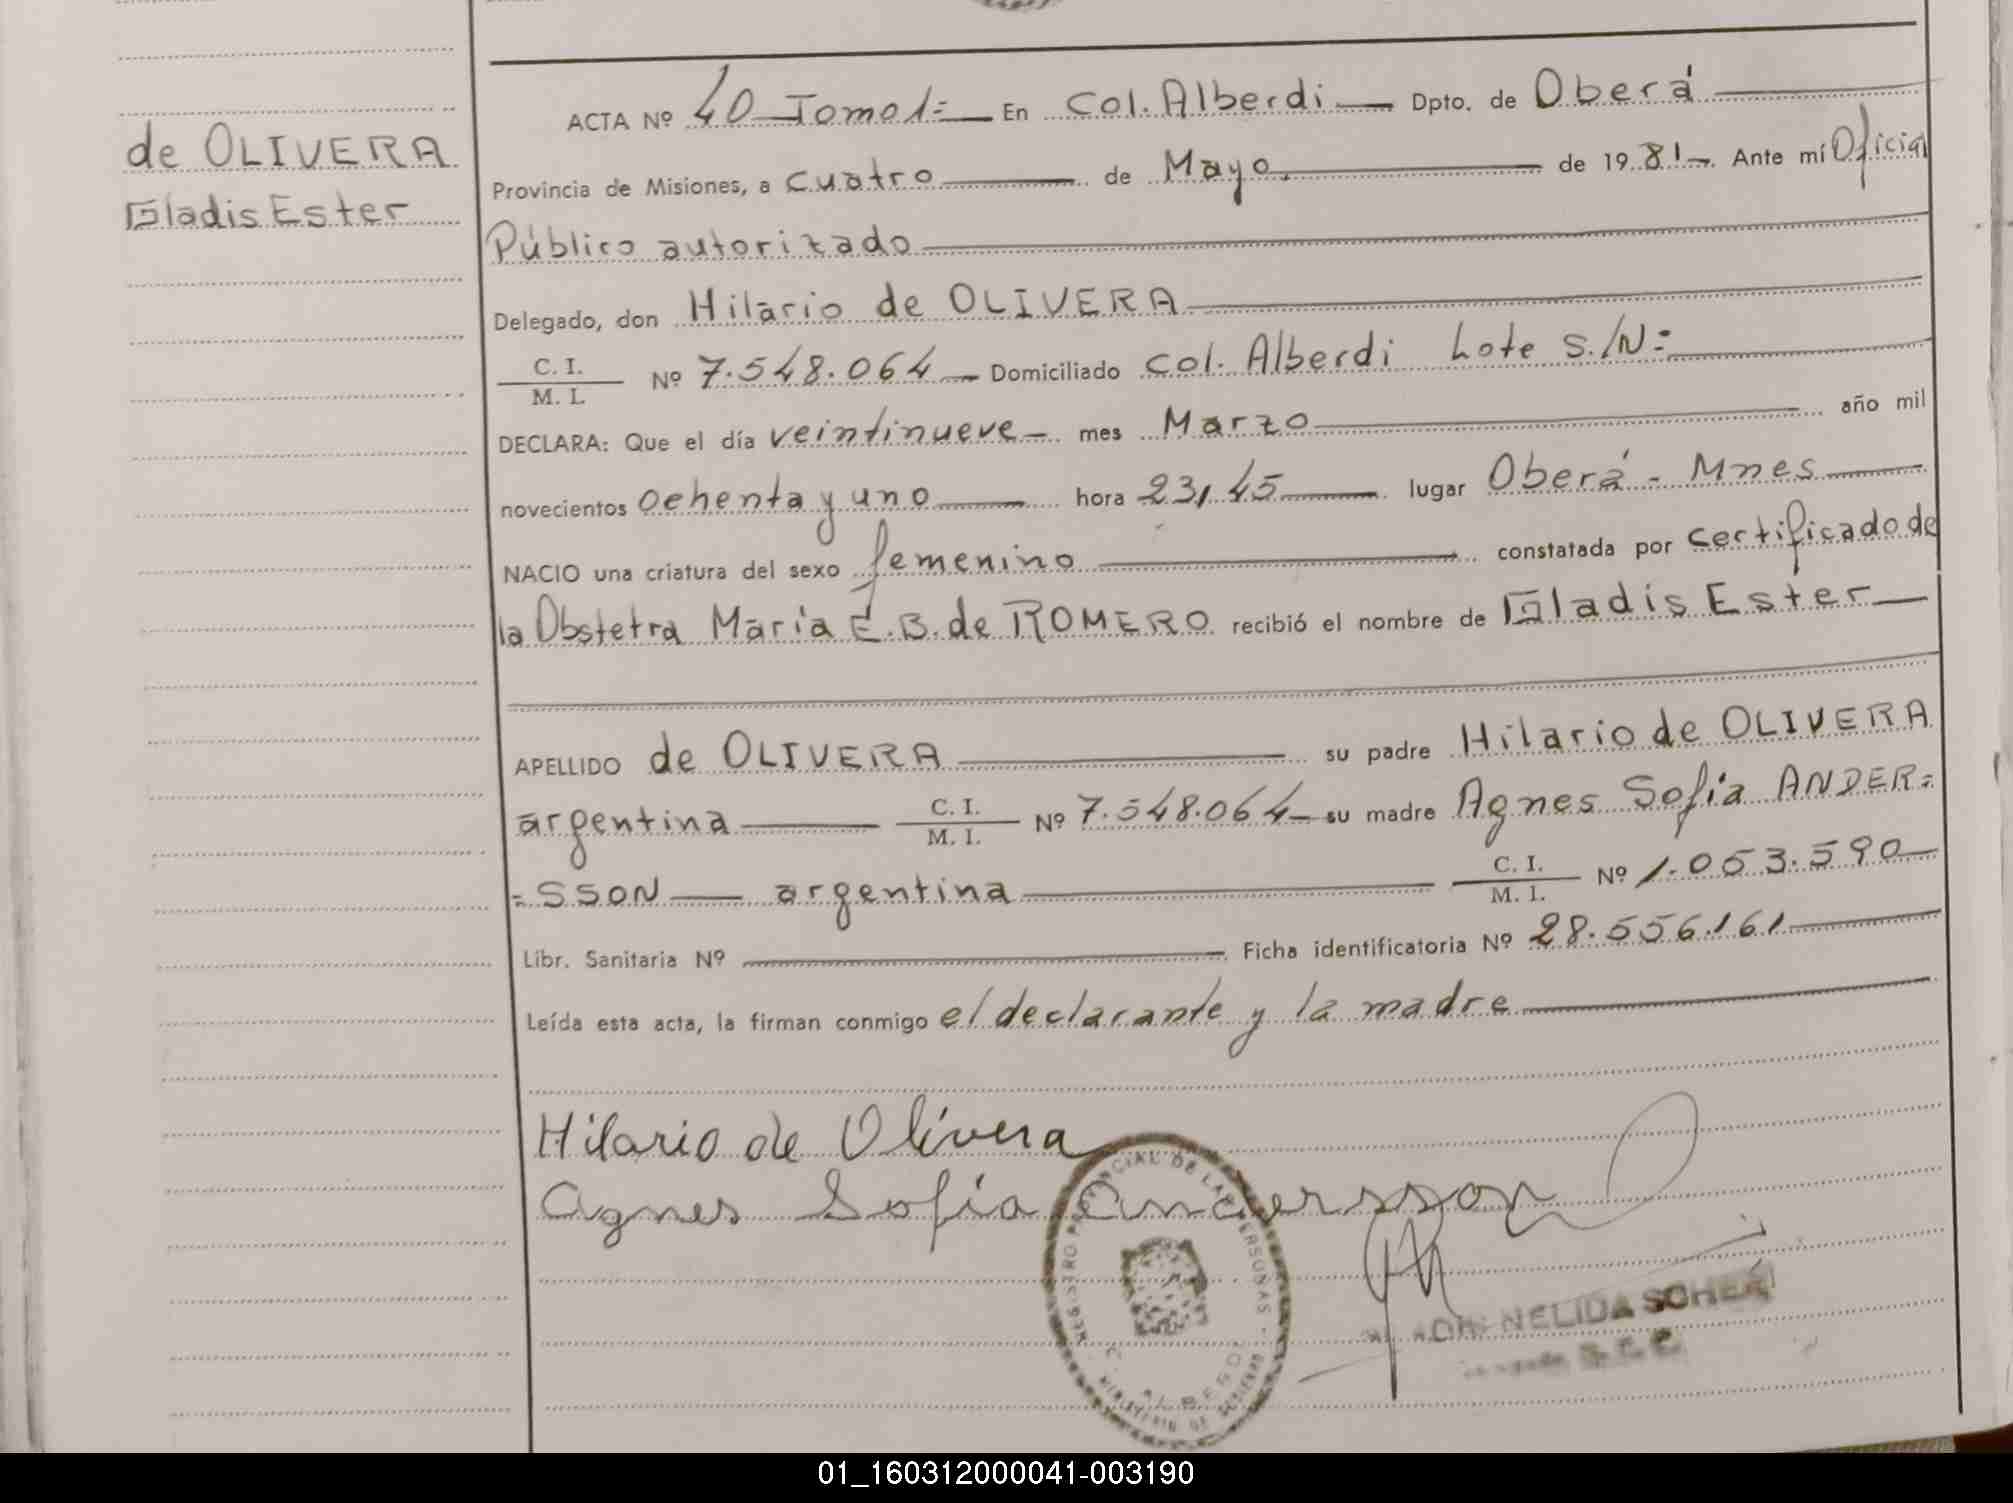 de OLIVERA
Gladis Ester
ACTA Nº 40 Tomo 1= En Col. Alberdi Dpto. de Oberá
Provincia de Misiones, a cuatro de Mayo. de 1981 Ante mí Oficial
Público autorizado
Delegado, don Hilario de OLIVERA
C. I.
M. I. Nº 7.548.064 Domiciliado Col. Alberdi Lote S./N=
DECLARA: Que el día veintinueve mes Marzo año mil
novecientos ochenta y uno hora 23,45 lugar Oberá - Mnes
NACIO una criatura del sexo femenino constatada por certificado de
la Obstetra María E. B. de ROMERO recibió el nombre de Gladis Ester
APELLIDO de OLIVERA su padre Hilario de OLIVERA
argentina C. I.
M. I. Nº 7.548.064 su madre Agnes Sofía ANDER=
=SSON argentina C. I.
M. I. Nº 1.053.590
Libr. Sanitaria Nº Ficha identificatoria Nº 28.556.161
Leída esta acta, la firman conmigo el declarante y la madre
Hilario de Olivera
Agnes Sofía Andersson
REGISTRO PROVINCIAL DE LAS PERSONAS
ALBERDI
MINISTERIO DE GOBIERNO
NELIDA SCHER
01_160312000041-003190